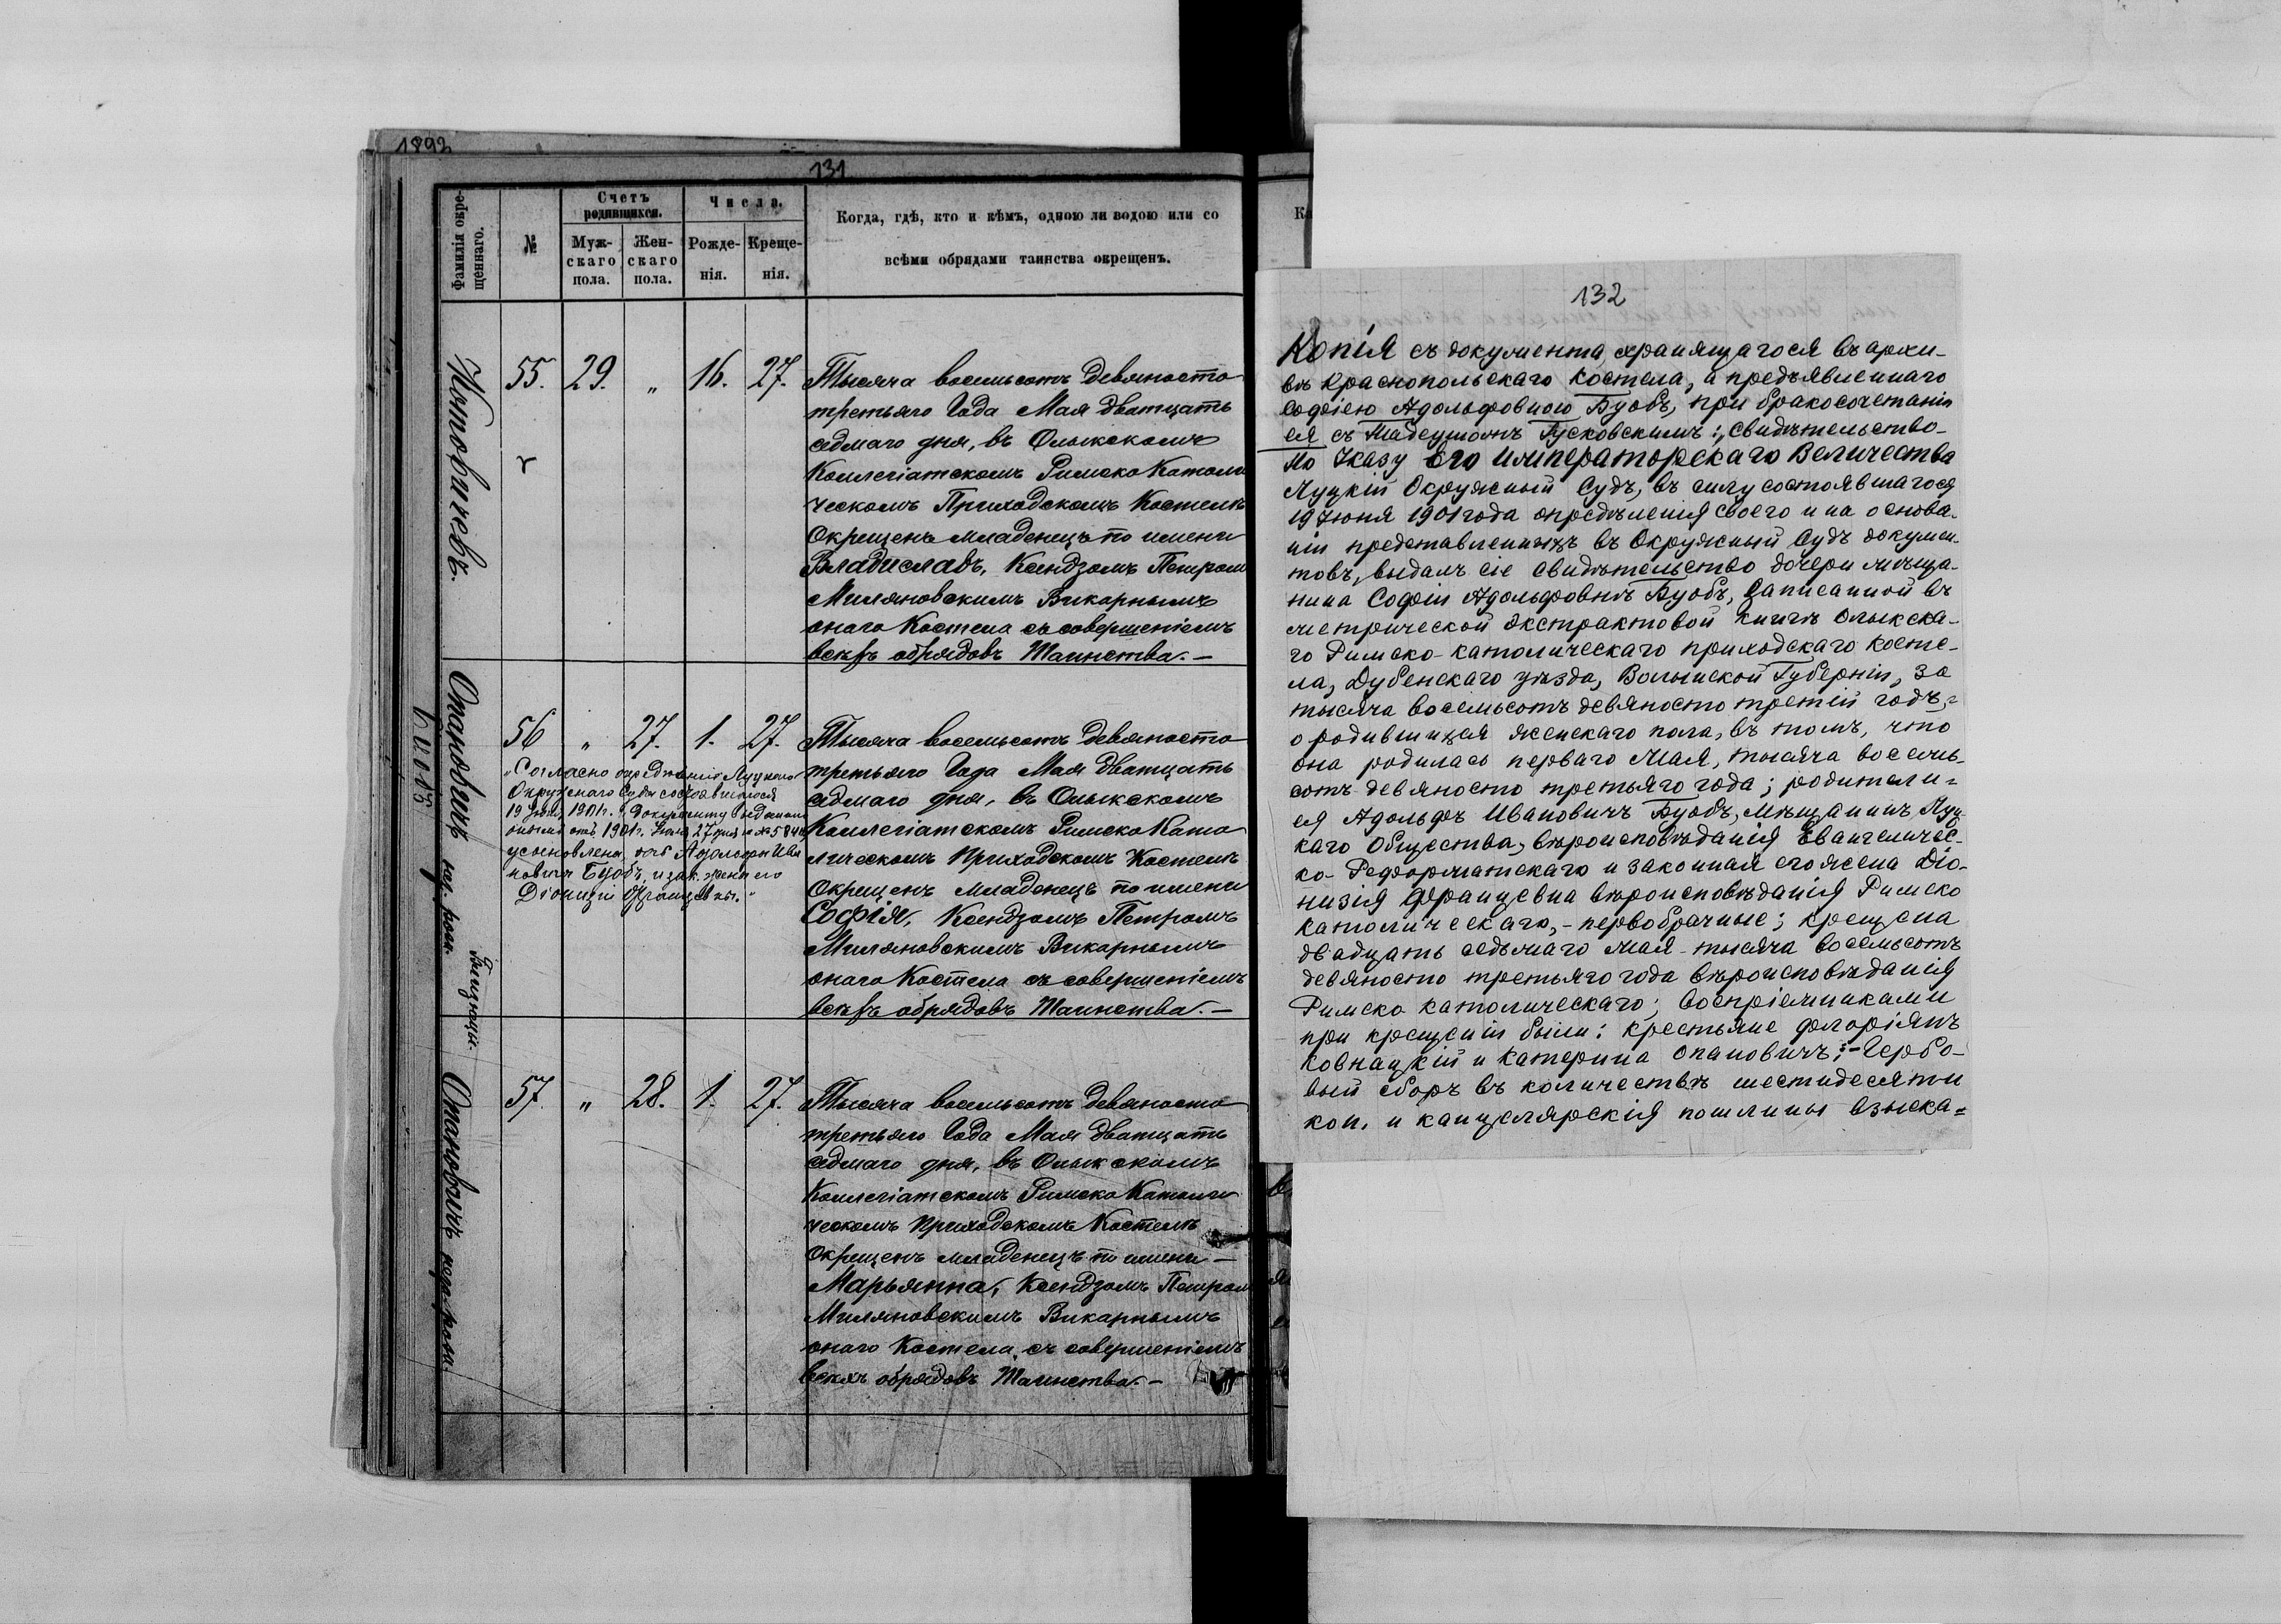 1892
131
Фамилія окре-
щеннаго.
№
Счетъ
родившихся.
Муж-
скаго
пола.
Жен-
скаго
пола.
Числа.
Рожде-
нія.
Креще-
нія.
Когда, гдѣ, кто и кѣмъ, одною ли водою или со
всѣми обрядами таинства окрещенъ.
55. 29. „ 16. 27.
Тысяча восемьсотъ девяносто
третьяго Года Мая дватцать
седмаго дня, въ Олыкскомъ
Коллегіатскомъ Римско Католи
ческомъ Приходскомъ Костелѣ
Окрещенъ младенецъ по имени
Владиславъ, Ксендзомъ Петром
Миляновскимъ Викарнымъ
онаго Костела съ совершеніемъ
всѣхъ обрядовъ Таинства. —
Опановичъ
Буобъ
56 „ 27. 1. 27.
„Согласно опредѣленію Луцкаго
Окружнаго Суда состоявшагося
19 Іюня 1901 г. документу выданому
1901 г. Іюня 27 дня за № 584
усыновлена Адольфа Ива
новича Буобъ, и зак. жены его
Діонизіи Францевны."
Тысяча восемьсотъ девяносто
третьяго Года Мая дватцать
седмаго дня, въ Олыкскомъ
Коллегіатскомъ Римско Като
лическомъ Приходскомъ Костелѣ
Окрещенъ младенецъ по имени
Софія, Ксендзомъ Петромъ
Миляновскимъ Викарнымъ
онаго Костела съ совершеніемъ
всѣхъ обрядовъ Таинства. —
Опановичъ
57. „ 28. 1. 27.
Тысяча восемьсотъ девяносто
третьяго Года Мая дватцать
седмаго дня, въ Олыкскомъ
Коллегіатскомъ Римско Католи
ческомъ Приходскомъ Костелѣ
Окрещенъ младенецъ по имени —
Марьянна, Ксендзомъ Петром
Миляновскимъ Викарнымъ
онаго Костела съ совершеніемъ
всѣхъ обрядовъ Таинства. —
132
Копія съ документа, хранящагося въ архи-
вѣ Краснопольскаго Костела, а предъявленнаго
Софіею Адольфовною Буобъ, при бракосочетаніи
ея съ Тадеушомъ Гусковскимъ: „Свидѣтельство-
По Указу Его Императорскаго Величества
Луцкій Окружный Судъ, въ силу состоявшагося
19 Іюня 1901 года опредѣленія своего и на основа-
ніи представленныхъ въ Окружный Судъ докумен-
товъ, выдалъ сіе свидѣтельство дочери мѣща-
нина Софіи Адольфовнѣ Буобъ, записанной въ
метрической экстрактовой книгѣ Олыкска-
го Римско-католическаго приходскаго Косте-
ла, Дубенскаго уѣзда, Волынской Губерніи, за
тысяча восемьсотъ девяносто третій годъ,=
о родившихся женскаго пола, въ томъ, что
она родилась перваго Мая, тысяча восемь-
сотъ девяносто третьяго года; родители=
ея Адольфъ Ивановичъ Буобъ, мѣщанинъ Луц-
каго Общества, вѣроисповѣданія Евангеличес-
ко-Реформатскаго и законная его жена Діо-
низія Францевна вѣроисповѣданія Римско
католическаго, - первобрачные; крещена
двадцать седьмаго мая тысяча восемьсотъ
девяносто третьяго года вѣроисповѣданія
Римско католическаго; воспріемниками
при крещеніи были: крестьяне Флоріянъ
Ковнацкій и Катерина Опановичъ; - Гербо-
вый сборъ въ количествѣ шестидесяти
коп. и канцелярскія пошлины взыска=